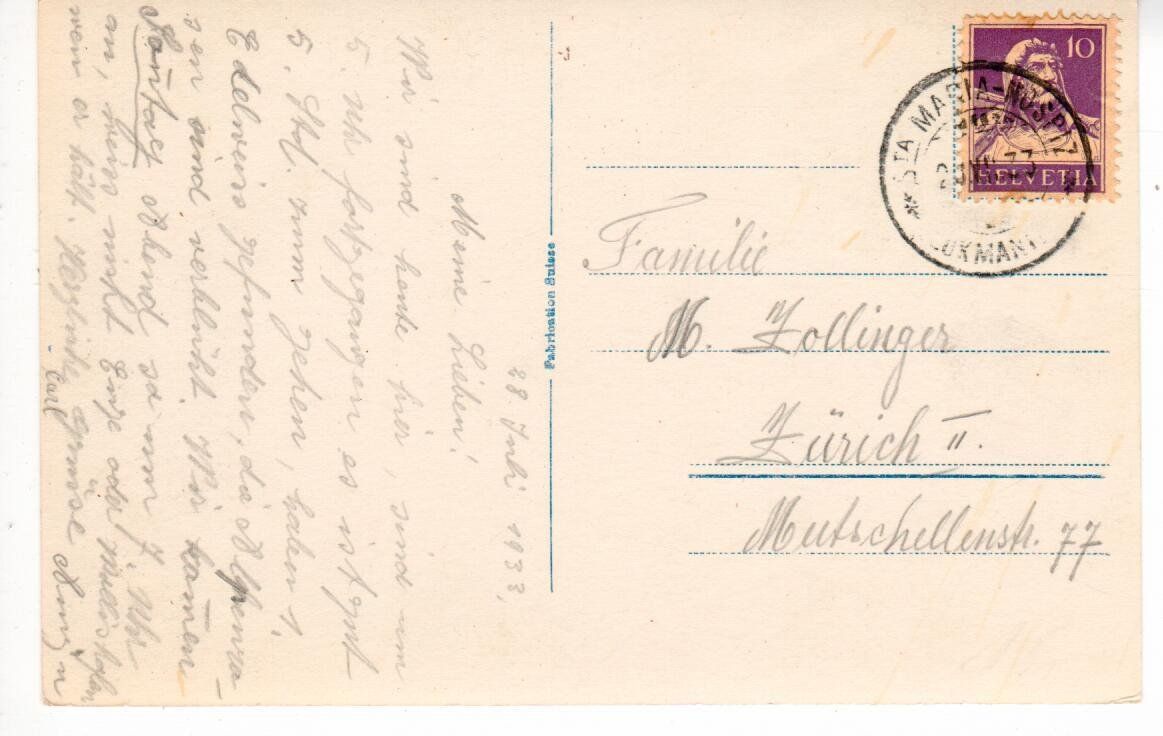 28 Juli 1933,
Meine Lieben!
Wir sind heute hier, sind um
5. Uhr fortgegangen es ist gut
5. Std. zum gehen, haben 1.
Edelweis gefunden, da Alpenro-
sen sind verblüht. Wir kamen
Sontag Abend so um 7. Uhr
an, weis nicht Enge oder
wen er hält. Herzliche grüsse
Carl
Fabrication Suisse
10
HELVETIA
STA MARIA-HOSPIZ
LUKMAN
Familie
M. Zollinger
Zürich II.
Mutschellenstr. 77